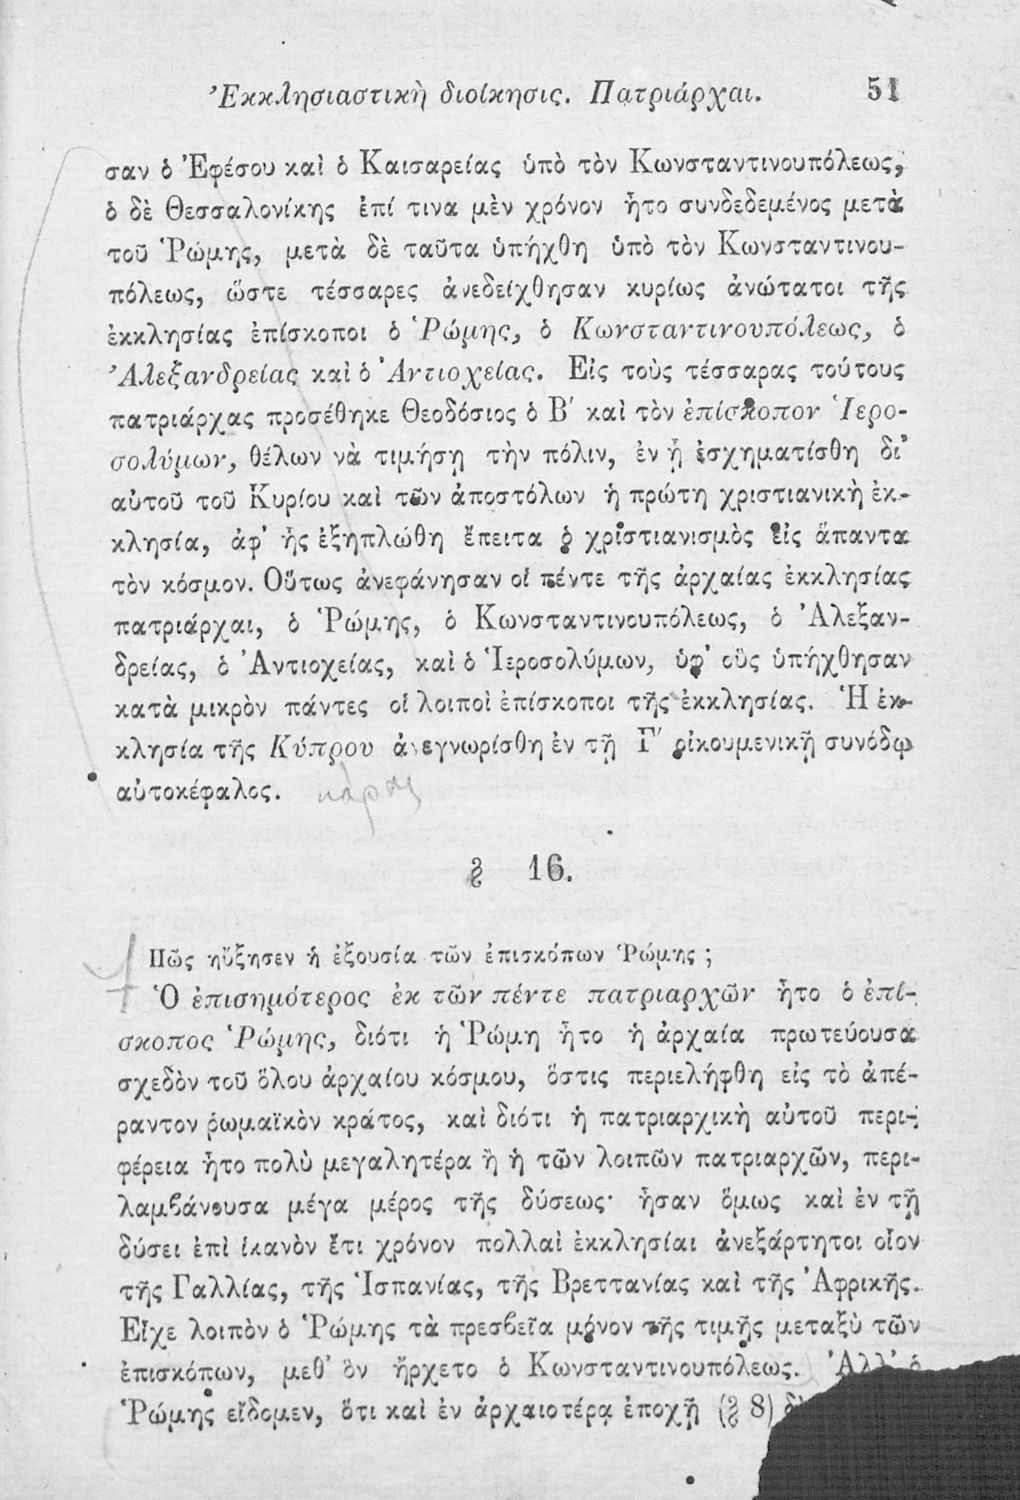 Ἐκκλησιαστικὴ διοίκησις. Πατριάρχαι. 51
σαν ὁ Ἐφέσου καὶ ὁ Καισαρείας ὑπὸ τὸν Κωνσταντινουπόλεως,
ὁ δὲ Θεσσαλονίκης ἐπί τινα μὲν χρόνον ἦτο συνδεδεμένος μετὰ
τοῦ Ῥώμης, μετὰ δὲ ταῦτα ὑπήχθη ὑπὸ τὸν Κωνσταντινου-
πόλεως, ὥστε τέσσαρες ἀνεδείχθησαν κυρίως ἀνώτατοι τῆς
ἐκκλησίας ἐπίσκοποι ὁ Ῥώμης, ὁ Κωνσταντινουπόλεως, ὁ
Ἀλεξανδρείας καὶ ὁ Ἀντιοχείας. Εἰς τοὺς τέσσαρας τούτους
πατριάρχας προσέθηκε Θεοδόσιος ὁ Β′ καὶ τὸν ἐπίσκοπον Ἱερο-
σολύμων, θέλων νὰ τιμήσῃ τὴν πόλιν, ἐν ᾗ ἐσχηματίσθη δι’
αὐτοῦ τοῦ Κυρίου καὶ τῶν ἀποστόλων ἡ πρώτη χριστιανικὴ ἐκ-
κλησία, ἀφ’ ἧς ἐξηπλώθη ἔπειτα ὁ χριστιανισμὸς εἰς ἅπαντα
τὸν κόσμον. Οὕτως ἀνεφάνησαν οἱ πέντε τῆς ἀρχαίας ἐκκλησίας
πατριάρχαι, ὁ Ῥώμης, ὁ Κωνσταντινουπόλεως, ὁ Ἀλεξαν-
δρείας, ὁ Ἀντιοχείας, καὶ ὁ Ἱεροσολύμων, ὑφ’ οὓς ὑπήχθησαν
κατὰ μικρὸν πάντες οἱ λοιποὶ ἐπίσκοποι τῆς ἐκκλησίας. Ἡ ἐκ-
κλησία τῆς Κύπρου ἀνεγνωρίσθη ἐν τῇ Γ′ οἰκουμενικῇ συνόδῳ
αὐτοκέφαλος.
§ 16.
Πῶς ηὔξησεν ἡ ἐξουσία τῶν ἐπισκόπων Ῥώμης ;
Ὁ ἐπισημότερος ἐκ τῶν πέντε πατριαρχῶν ἦτο ὁ ἐπί-
σκοπος Ῥώμης, διότι ἡ Ῥώμη ἦτο ἡ ἀρχαία πρωτεύουσα
σχεδὸν τοῦ ὅλου ἀρχαίου κόσμου, ὅστις περιελήφθη εἰς τὸ ἀπέ-
ραντον ῥωμαϊκὸν κράτος, καὶ διότι ἡ πατριαρχικὴ αὐτοῦ περι-
φέρεια ἦτο πολὺ μεγαλητέρα ἢ ἡ τῶν λοιπῶν πατριαρχῶν, περι-
λαμβάνουσα μέγα μέρος τῆς δύσεως· ἦσαν ὅμως καὶ ἐν τῇ
δύσει ἐπὶ ἱκανὸν ἔτι χρόνον πολλαὶ ἐκκλησίαι ἀνεξάρτητοι οἷον
τῆς Γαλλίας, τῆς Ἱσπανίας, τῆς Βρεττανίας καὶ τῆς Ἀφρικῆς.
Εἶχε λοιπὸν ὁ Ῥώμης τὰ πρεσβεῖα μόνον τῆς τιμῆς μεταξὺ τῶν
ἐπισκόπων, μεθ’ ὃν ἤρχετο ὁ Κωνσταντινουπόλεως. Ἀλλ’ ὁ
Ῥώμης εἴδομεν, ὅτι καὶ ἐν ἀρχαιοτέρᾳ ἐποχῇ (§ 8)